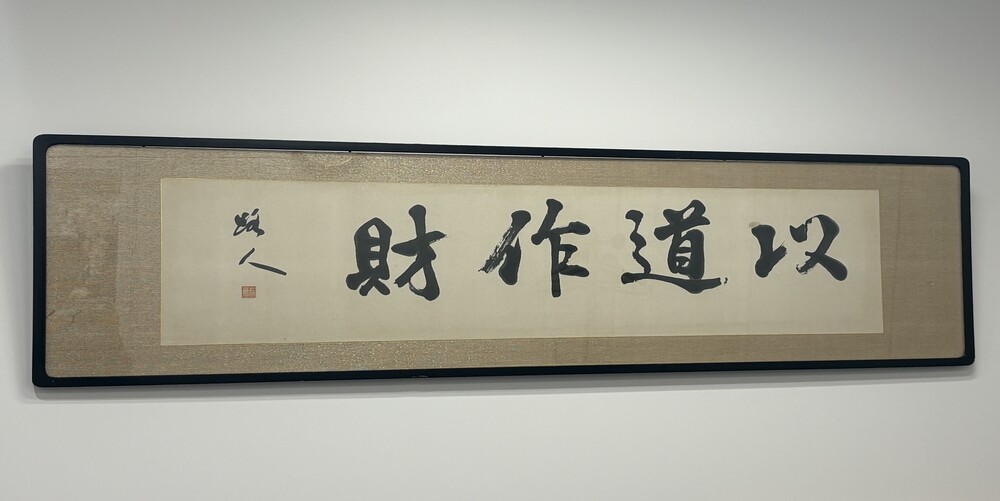 以道作財
路人